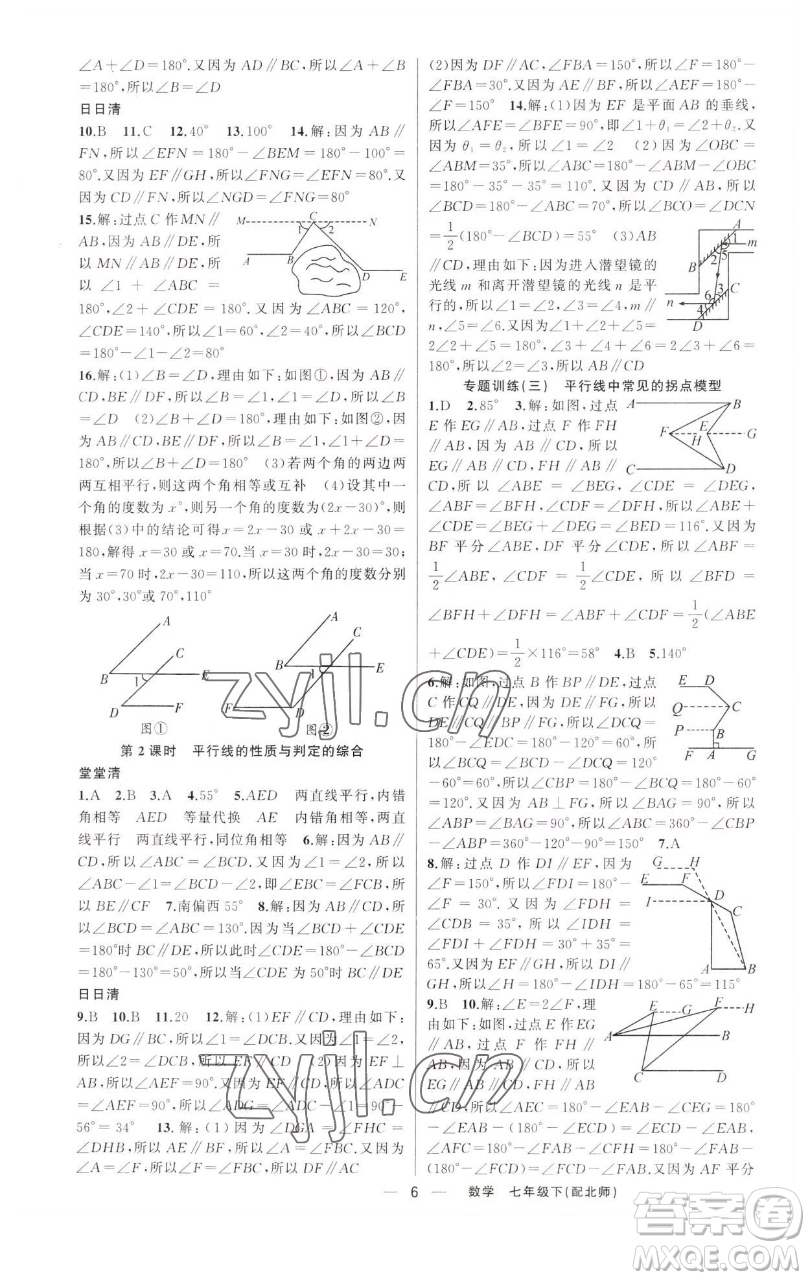 ∠A+∠D=180°.又因为 AD∥BC,所以∠A+∠B
=180°,所以∠B=∠D
日日清
10.B 11.C 12.40° 13.100° 14.解:因为 AB∥
FN,所以∠EFN=180°-∠BEM=180°-100°=
80°.又因为 EF∥GH,所以∠FNG=∠EFN=80°.又
因为 CD∥FN,所以∠NGD=∠FNG=80°
15.解:过点 C 作 MN∥
AB,因为 AB∥DE,所
以 MN∥AB∥DE,所
以∠1+∠ABC=
180°,∠2+∠CDE=180°.又因为∠ABC=120°,
∠CDE=140°,所以∠1=60°,∠2=40°,所以∠BCD
=180°-∠1-∠2=80°
M C N
1 2
A B D E
16.解:(1)∠B=∠D,理由如下:如图①,因为 AB∥
CD,BE∥DF,所以∠B=∠1,∠1=∠D,所以∠B=
∠D (2)∠B+∠D=180°,理由如下:如图②,因为
AB∥CD,BE∥DF,所以∠B=∠1,∠1+∠D=
180°,所以∠B+∠D=180° (3)若两个角的两边两
两互相平行,则这两个角相等或互补 (4)设其中一
个角的度数为 x°,则另一个角的度数为(2x-30)°,则
根据(3)中的结论可得 x=2x-30 或 x+2x-30=
180,解得 x=30 或 x=70.当 x=30 时,2x-30=30;
当 x=70 时,2x-30=110,所以这两个角的度数分别
为 30°,30°或 70°,110°
A C B 1 E D F
图①
A C B 1 E F D
图②
第 2 课时 平行线的性质与判定的综合
堂堂清
1.A 2.B 3.A 4.55° 5.AED 两直线平行,内错
角相等 AED 等量代换 AE 内错角相等,两直
线平行 两直线平行,同位角相等 6.解:因为 AB∥
CD,所以∠ABC=∠BCD.又因为∠1=∠2,所以
∠ABC-∠1=∠BCD-∠2,即∠EBC=∠BCF,所
以 BE∥CF 7.南偏西 55° 8.解:因为 AB∥CD,所
以∠BCD=∠ABC=50°.当∠CDE+∠BCD=180°
时 BC∥DE,所以此时∠CDE=180°-∠BCD
=180°-50°=130°;所以当∠CDE 为 50°时 BC∥DE
日日清
9.B 10.B 11.20 12.解:(1)EF∥CD,理由如下:
因为 DG∥BC,所以∠1=∠DCB.又因为∠1=∠2,
所以∠2=∠DCB,所以 EF∥CD (2)因为 EF⊥
AB,所以∠AEF=90°.又因为 EF∥CD,所以∠ADC
=∠AEF=90°,所以∠ADG=∠ADC-∠1=90°-
56°=34° 13.解:(1)因为∠DGA=∠FHC=
∠DHB,所以 AE∥BF,所以∠A=∠FBC.又因为
∠A=∠F,所以∠F=∠FBC,所以 DF∥AC
(2)因为 DF∥AC,∠FBA=150°,所以∠F=180°-
∠FBA=30°.又因为 AE∥BF,所以∠AEF=180°-
∠F=150° 14.解:(1)因为 EF 是平面 AB 的垂线,
所以∠AFE=∠BFE=90°,即∠1+θ₁=∠2+θ₂.又
因为 θ₁=θ₂,所以∠1=∠2 (2)因为∠OBC=
∠ABM=35°,所以∠ABC=180°-∠ABM-∠OBC
=180°-35°-35°=110°.又因为 AB∥CD,所以
∠BCD=180°-∠ABC=70°,所以∠BCO=∠DCN
=1/2(180°-∠BCD)=55° (3)AB
∥CD,理由如下:因为进入潜望镜的
光线 m 和离开潜望镜的光线 n 是平
行的,所以∠1=∠2,∠3=∠4,m∥
n,∠5=∠6.又因为∠1+∠2+∠5=
180°,∠3+∠4+∠6=180°,所以∠1+∠2=∠3+∠4,所以
2∠2=2∠3,所以∠2=∠3,所以 AB∥CD
专题训练(三) 平行线中常见的拐点模型
1.D 2.85° 3.解:如图,过点
E 作 EG∥AB,过点 F 作 FH
∥AB,因为 AB∥CD,所以
EG∥AB∥CD,FH∥AB∥
CD,所以∠ABE=∠BEG,∠CDE=∠DEG,
∠ABF=∠BFH,∠CDF=∠DFH,所以∠ABE+
∠CDE=∠BEG+∠DEG=∠BED=116°.又因为
BF 平分∠ABE,DF 平分∠CDE,所以∠ABF=
1/2∠ABE,∠CDF=1/2∠CDE,所以∠BFD=
∠BFH+∠DFH=∠ABF+∠CDF=1/2(∠ABE
+∠CDE)=1/2×116°=58° 4.B 5.140°
A B F E G H C D
6.解:如图,过点 B 作 BP∥DE,过点
C 作 CQ∥DE,因为 DE∥FG,所以
DE∥CQ∥BP∥FG,所以∠DCQ=
180°-∠CDE=180°-120°=60°,
所以∠BCQ=∠BCD-∠DCQ=120°
-60°=60°,所以∠CBP=180°-∠BCQ=180°-60°
=120°.又因为 AB⊥FG,所以∠BAG=90°,所以
∠ABP=∠BAG=90°,所以∠ABC=360°-∠CBP
-∠ABP=360°-120°-90°=150° 7.A
E D Q C P B F A G
8.解:过点 D 作 DI∥EF,因为
∠F=150°,所以∠FDI=180°-
∠F=30°.又因为 AB∥EF,
∠CDB=35°,所以∠IDH=
∠FDI+∠FDH=30°+35°=
65°.又因为 GH∥EF,所以 DI∥
GH,所以∠H=180°-∠IDH=180°-65°=115°
G H E F D I C A B
9.B 10.解:∠E=2∠F,理由
如下:如图,过点 E 作 EG∥
AB,过点 F 作 FH∥AB,因为
AB∥CD,所以 EG∥AB∥
CD,所以∠AEC=180°-∠EAB-∠CEG=
180°-∠EAB-(180°-∠ECD)=∠ECD-∠EAB,
∠AFC=∠FCD-∠FAB.又因为 AF 平分
E G F H A B C D
zyjl.cn
答案圈
MXQE.COM
— 6 — 数学 七年级下(配北师)